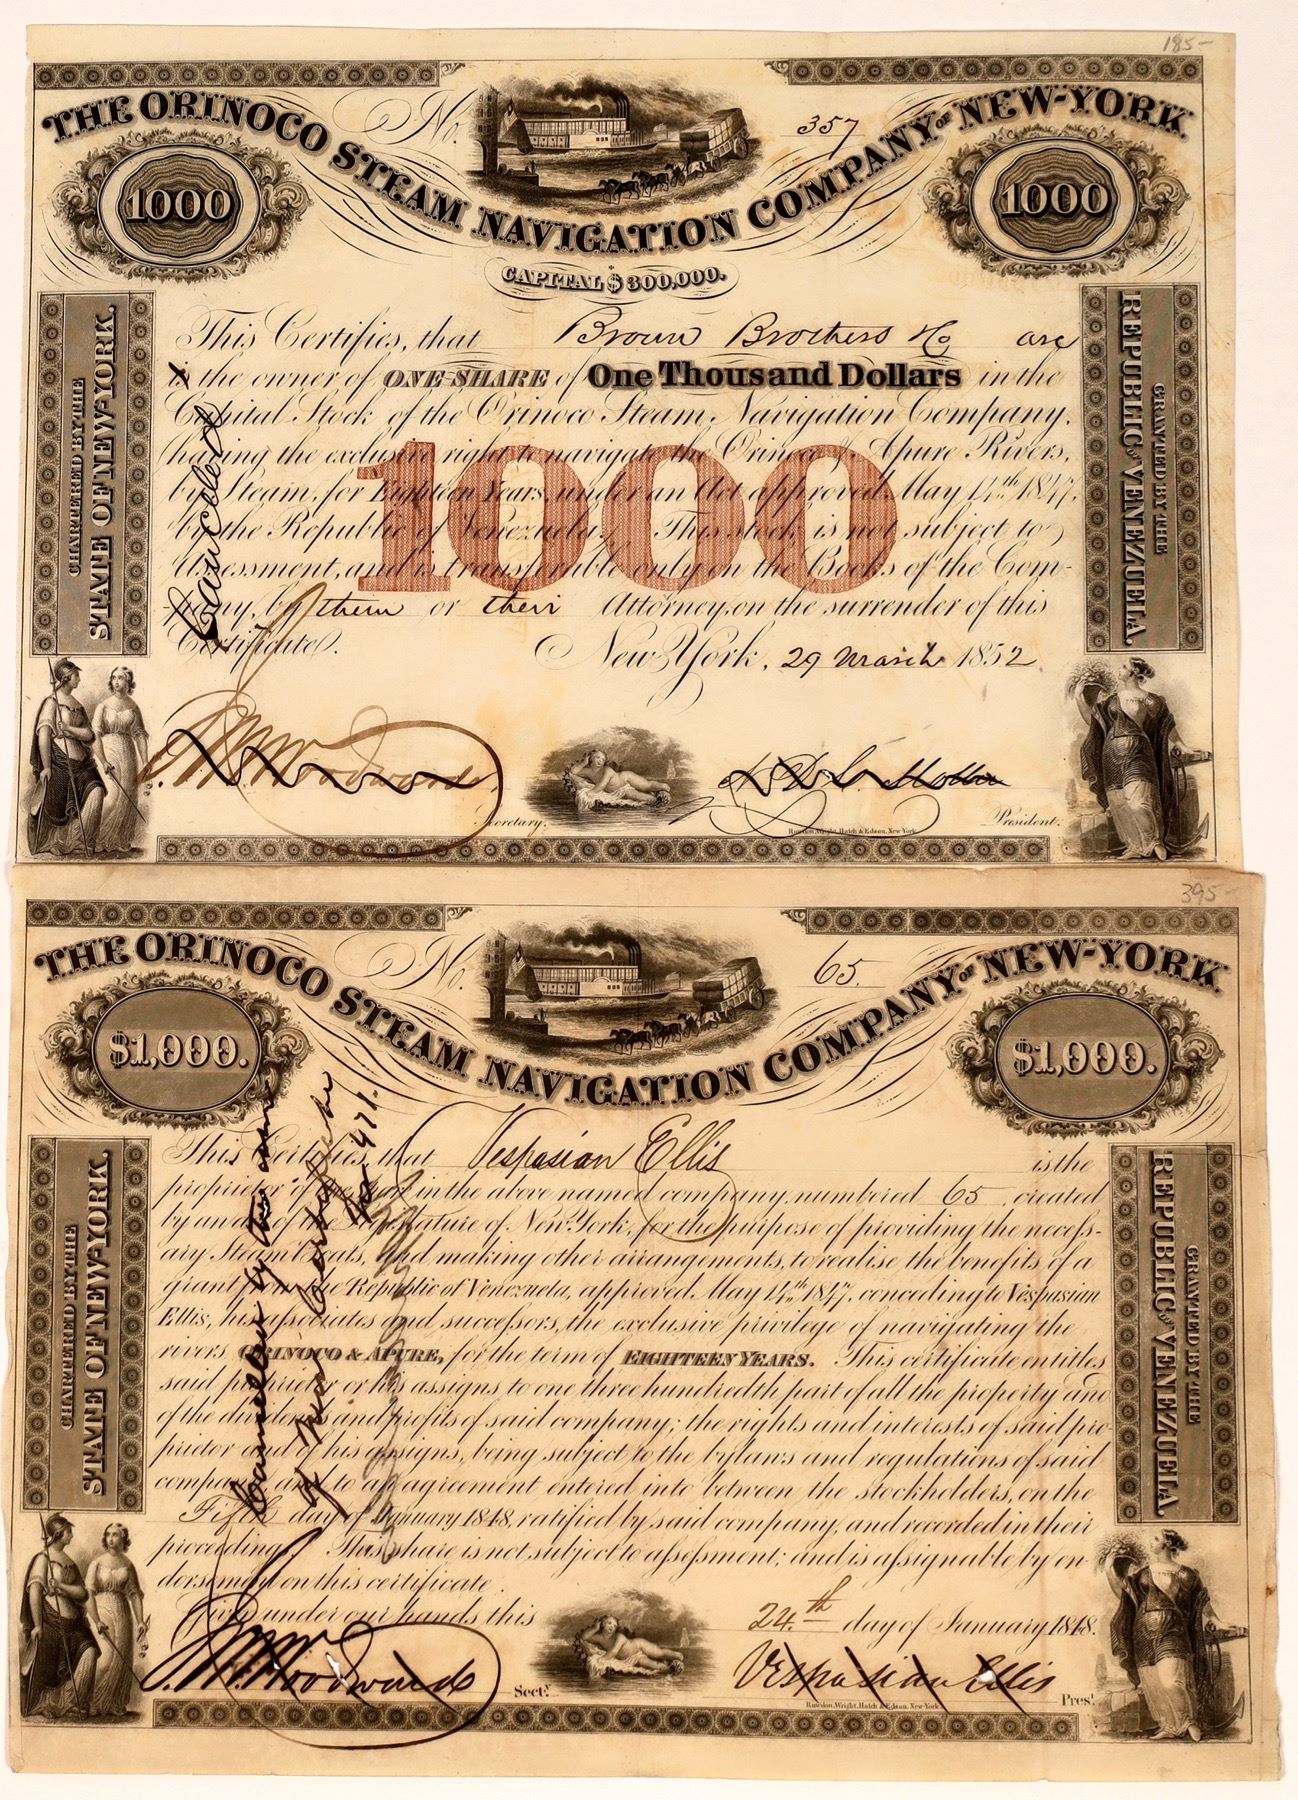 185-
THE ORINOCO STEAM NAVIGATION COMPANY OF NEW-YORK
No. 357
1000
1000
CAPITAL $300,000.
CHARTERED BY THE
STATE OF NEW-YORK.
This Certifies, that Brown Brothers & Co are
is the owner of ONE SHARE of One Thousand Dollars in the
Capital Stock of the Orinoco Steam Navigation Company,
having the exclusive right to navigate the Orinoco & Apure Rivers,
by Steam, for Eighteen Years, under an Act approved May 14th 1847,
by the Republic of Venezuela. This stock is not subject to
Assessment, and is transferable only on the Books of the Com-
pany, by them or their Attorney, on the surrender of this
Certificate.
1000
Cancelled
New York, 29 March 1852
GRANTED BY THE
REPUBLIC OF VENEZUELA.
Woodward
Secretary.
President.
Rawdon, Wright, Hatch & Edson, New York
395-
THE ORINOCO STEAM NAVIGATION COMPANY OF NEW-YORK.
No. 65.
$1,000.
$1,000.
CHARTERED BY THE
STATE OF NEW-YORK.
This Certifies, that Vespasian Ellis is the
proprietor of one share in the above named company, numbered 65, created
by an act of the Legislature of New York, for the purpose of providing the necess-
ary Steam Boats, and making other arrangements, to realise the benefits of a
grant from the Republic of Venezuela, approved May 14th 1847, conceding to Vespasian
Ellis, his associates and successors, the exclusive privilege of navigating the
rivers ORINOCO & APURE, for the term of EIGHTEEN YEARS. This certificate entitles
said proprietor or his assigns, to one three hundredth part of all the property and
of the dividends and profits of said company; the rights and interests of said pro-
prietor and of his assigns, being subject to the bylaws and regulations of said
company, and to an agreement entered into between the stockholders, on the
Fifth day of January 1848, ratified by said company, and recorded in their
proceedings. This share is not subject to assessment; and is assignable by en-
dorsement on this certificate.
Given under our hands this 24th day of January 1848.
Cancelled by the issue
of New Certificate
No 471.
GRANTED BY THE
REPUBLIC OF VENEZUELA.
Woodward
Secty.
Vespasian Ellis
Prest.
Rawdon, Wright, Hatch & Edson, New York